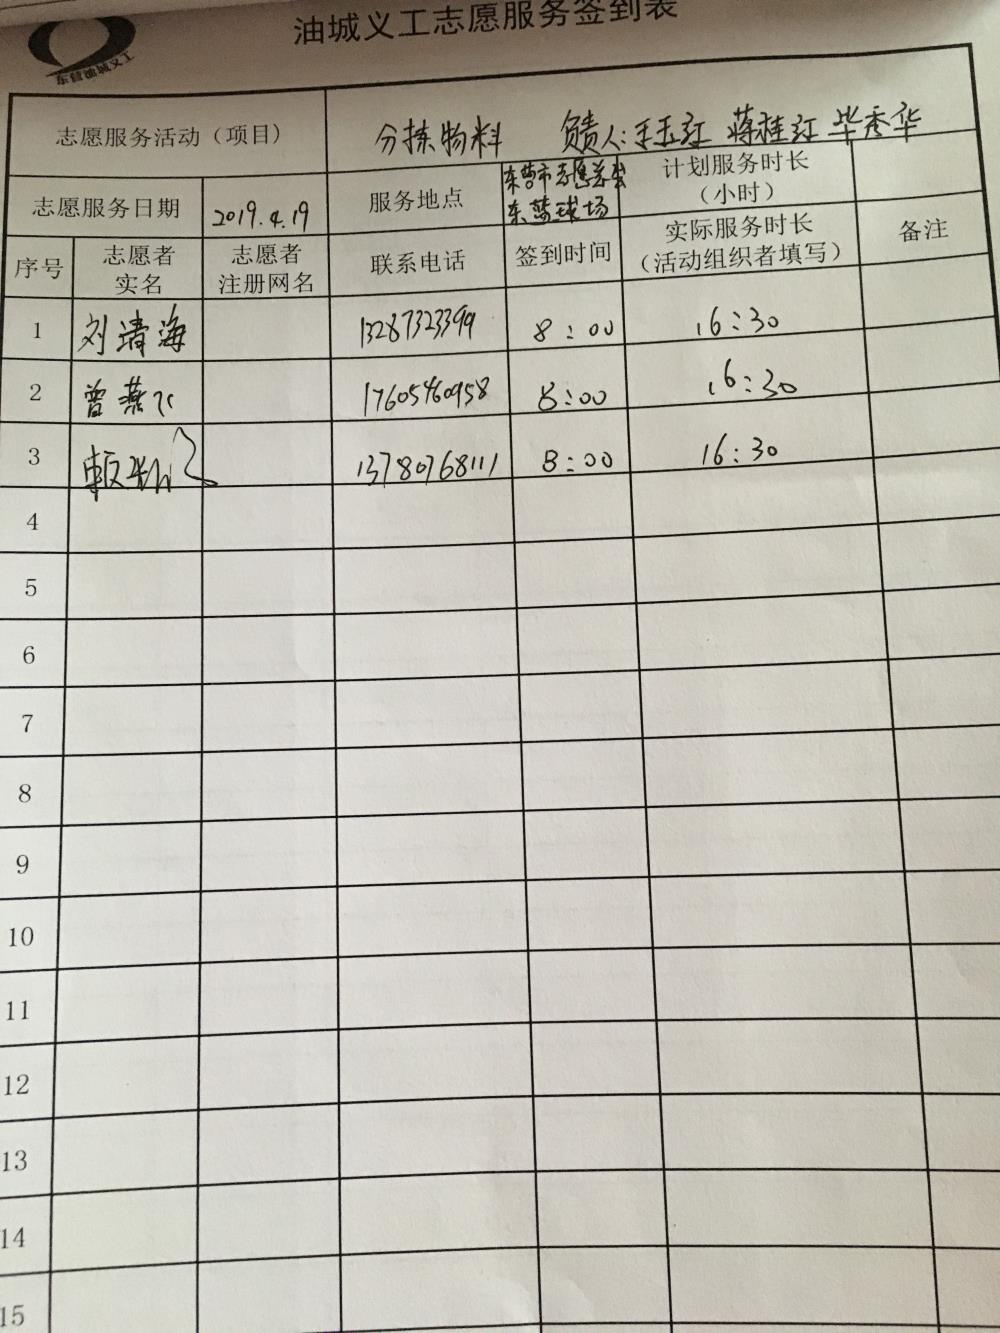 油城义工志愿服务签到表
东营油城义工
志愿服务活动（项目） 分拣物料 负责人:王玉红 蒋桂红 毕秀华
志愿服务日期 2019.4.19 服务地点 东营市志愿 东篮球场 计划服务时长（小时）
序号 志愿者实名 志愿者注册网名 联系电话 签到时间 实际服务时长（活动组织者填写） 备注
1 刘清海 13287323399 8:00 16:30
2 曾燕 17605460958 8:00 16:30
3 13780768111 8:00 16:30
4
5
6
7
8
9
10
11
12
13
14
15